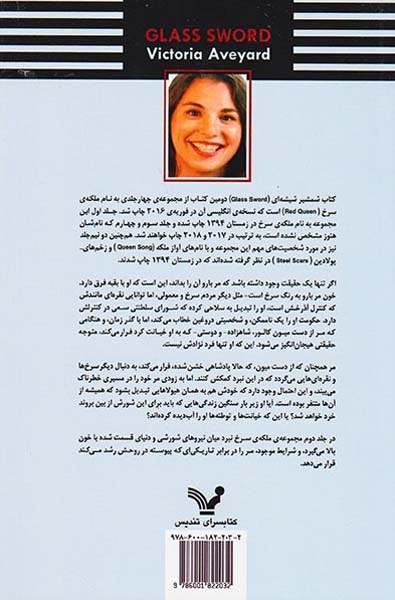 GLASS SWORD
Victoria Aveyard
کتاب شمشیر شیشه‌ای (Glass Sword) دومین کتاب از مجموعه‌ی چهارجلدی به نام ملکه‌ی
سرخ (Red Queen) است که نسخه‌ی انگلیسی آن در فوریه‌ی ۲۰۱۶ چاپ شد. جلد اول این
مجموعه به نام ملکه‌ی سرخ در زمستان ۱۳۹۴ چاپ شده و جلد سوم و چهارم که نام‌شان
هنوز مشخص نشده است، به ترتیب در ۲۰۱۷ و ۲۰۱۸ چاپ خواهند شد. همچنین دو نیم‌جلد
نیز در مورد شخصیت‌های مهم این مجموعه و با نام‌های آواز ملکه (Queen Song) و زخم‌های
پولادین (Steel Scars) در نظر گرفته شده‌اند که در زمستان ۱۳۹۴ چاپ شدند.
اگر تنها یک حقیقت وجود داشته باشد که مر بارو آن را بداند، این است که او با بقیه فرق دارد.
خون مر بارو به رنگ سرخ است- مثل دیگر مردم سرخ و معمولی، اما توانایی نقره‌ای مانندش
که کنترل آذرخش است، او را تبدیل به سلاحی کرده که شورای سلطنتی سعی در کنترلش
دارد. حکومت او را یک ناممکن، و شخصیتی دروغین خطاب می‌کند، اما با گذر زمان، و هنگامی
که مر از دست میون کالور، شاهزاده- و دوستی- که به او خیانت کرد فرار می‌کند، متوجه
حقیقتی هیجان‌انگیز می‌شود. این که او تنها فرد نژادش نیست.
مر همچنان که از دست میون، که حالا پادشاهی خشن شده، فرار می‌کند، به دنبال دیگر سرخ‌ها
و نقره‌ای‌هایی می‌گردد که در این نبرد کمکش کنند. اما به زودی مر خود را در مسیری خطرناک
می‌بیند، و این احتمال وجود دارد که خودش هم به همان هیولاهایی تبدیل بشود که همیشه از
آن‌ها متنفر بوده است. آیا او زیر بار سنگین زندگی‌هایی که باید برای این شورش از بین بروند
خرد خواهد شد؟ یا این که خیانت‌ها و توطئه‌ها او را آب‌دیده کرده‌اند؟
در جلد دوم مجموعه‌ی ملکه‌ی سرخ نبرد میان نیروهای شورشی و دنیای قسمت شده با خون
بالا می‌گیرد، و شرایط موجود، مر را در برابر تاریکی‌ای که پیوسته در روحش رشد می‌کند
قرار می‌دهد.
کتابسرای تندیس
۹۷۸-۶۰۰-۱۸۲-۲۰۳-۲
9 786001 822032